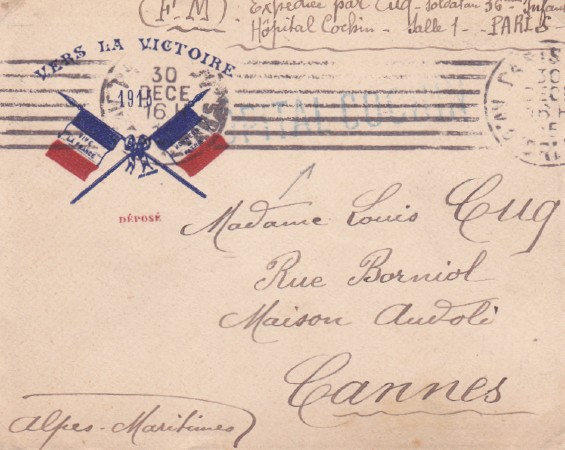 (F. M) . Expédiée par Cug - soldat au 36 - Infant
Hôpital Cochin - Salle 1 - PARIS
VERS LA VICTOIRE
30
DECE
16 H
1915
HOPITAL COCHIN
VIVE LA FRANCE
DÉPOSÉ
Madame Louis Cug
Rue Borniol
Maison Audoli
Cannes
Alpes-Maritimes